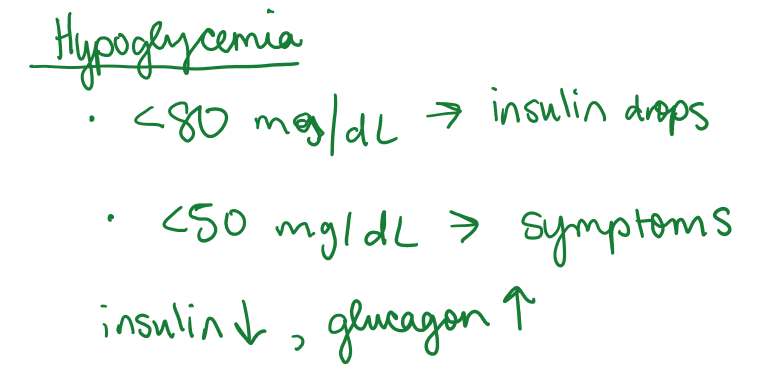 Hypoglycemia
· <80 mg/dL → insulin drops
· <50 mg/dL → symptoms
insulin ↓, glucagon ↑